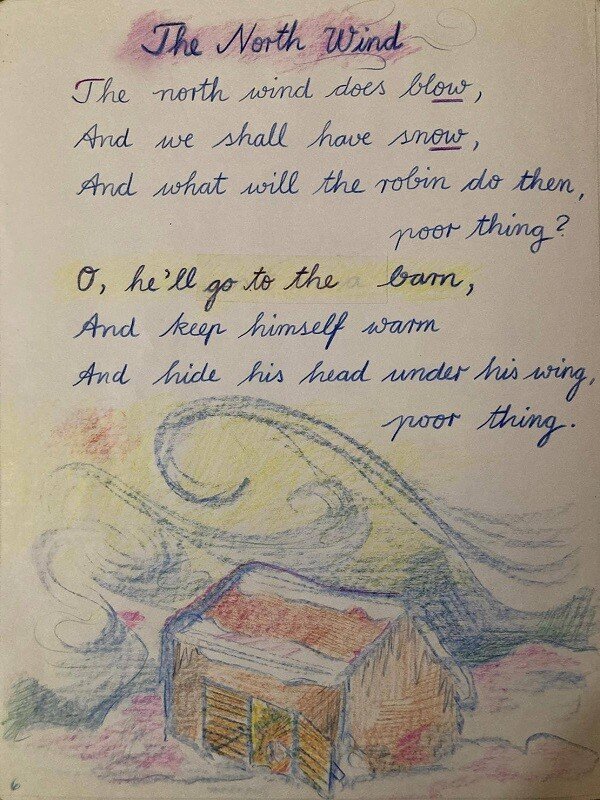 The North Wind
The north wind does blow,
And we shall have snow,
And what will the robin do then,
poor thing?
O, he'll go to the barn,
And keep himself warm
And hide his head under his wing,
poor thing.
6